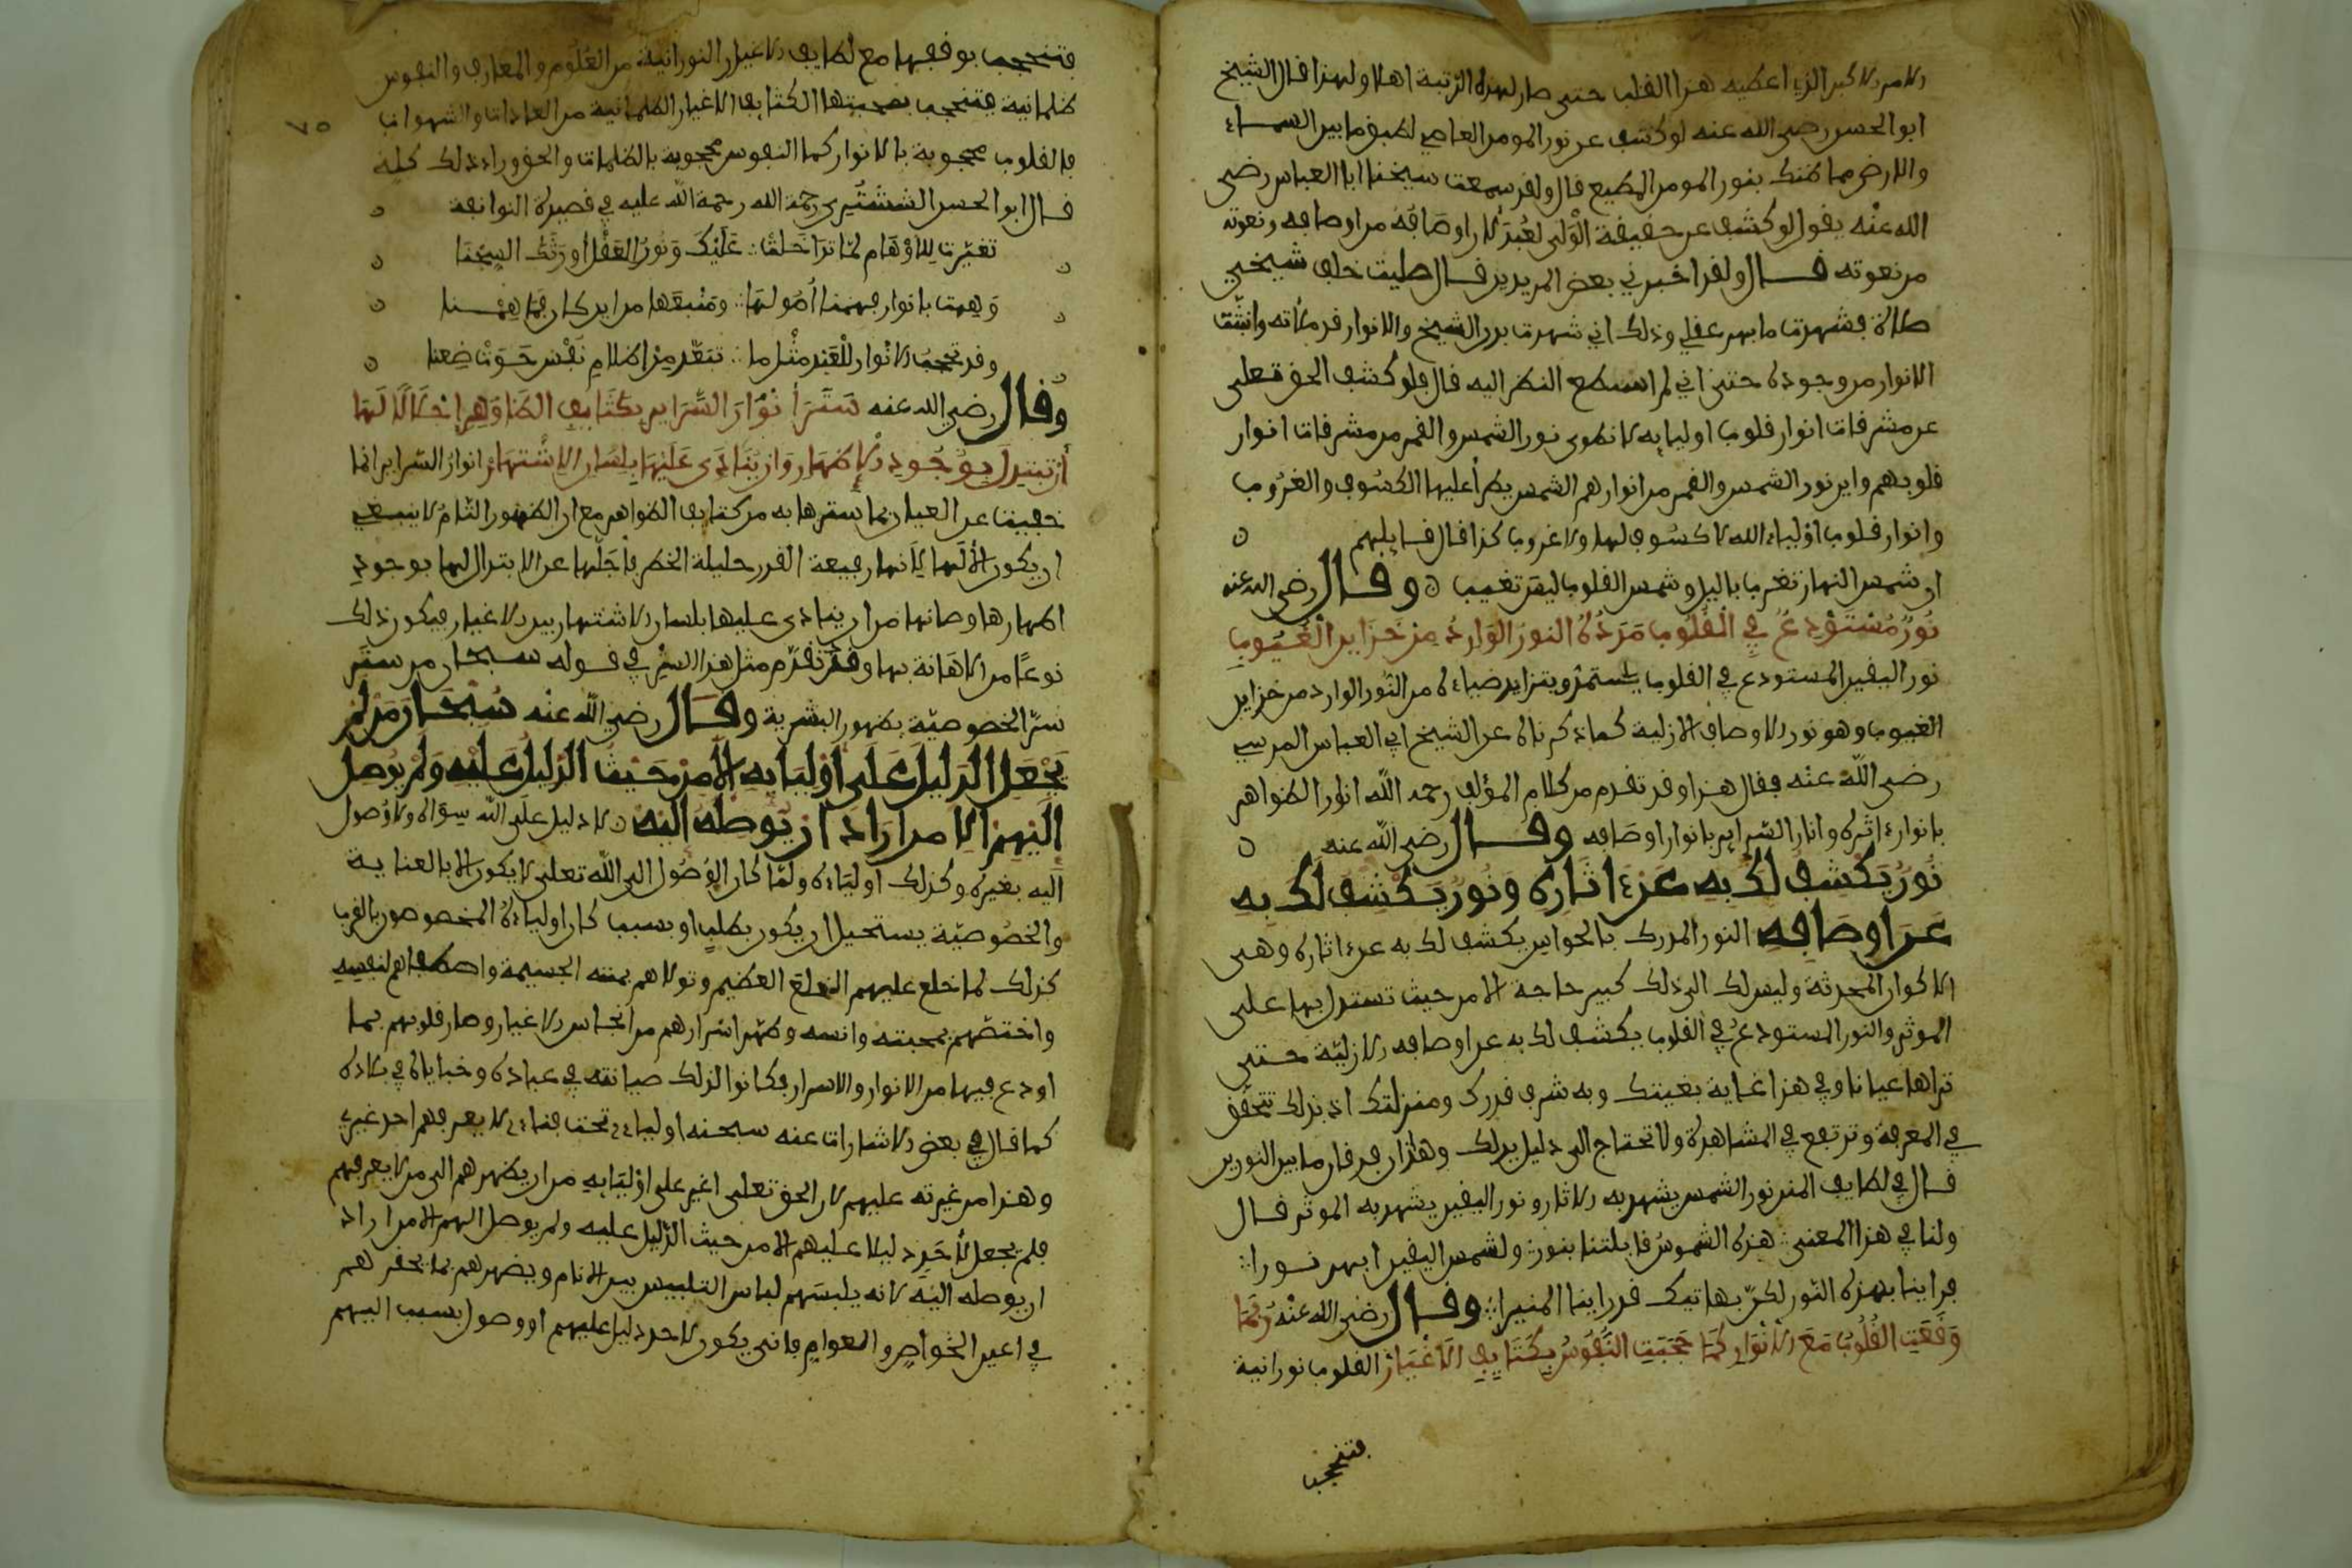 الامر الاكبر الذي اعطيه هذا القلب حتى صار لهذه الرتبة اهلا ولهذا قال الشيخ
ابو الحسن رضي الله عنه لو كشف عن نور المومن العاصي لطبق ما بين السماء
والارض فما ظنك بنور المومن المطيع قال ولقد سمعت شيخنا ابا العباس رضي
الله عنْه يقول لو كشف عن حقيقة الْوَلى لعُبِدَ لان اوصَافَهُ من اوصافه ونعوته
من نعوته قال ولقد اخبرني بعض المريدين قال صليت خلف شيخي
صلاة فشهدت ما بهر عقلي وذلك اني شهدت بدن الشيخ والانوار قد ملاته وانبثت
الانوار من وجوده حتى اني لم استطع النظر اليه قال فلو كشف الحق تعلى
عن مشرقات انوار قلوب اوليايه لانطوى نور الشمس والقمر من مشرقات انوار
قلوبهم واين نور الشمس والقمر من انوارهم الشمس يطرأ عليها الكسُوف والغرُوب
وانوار قلوب اوْلياء الله لا كسُوف لها ولا غروب كذا قال قايلهم ن
ان شمس النهار تغرب باليل وشمس القلوب ليس تغيب ن وقال رضي الله عنه
نُورٌ مُسْتَوْدَعٌ فِي الْقُلُوبِ مَدَدُهُ النورُ الوَارِدُ مِنْ خَزَاينِ الْغُيُوبِ
نور اليقين المستودع في القلوب يستمدّ ويتزايد ضياءه من النُّور الوارد من خزاين
الغيوب وهو نور الاوصاف الازلية كما ذكرناه عن الشيخ ابي العباس المرسي
رضي الله عنْه فقال هذا وقد تقدم من كلام المؤلف رحمه الله انار الظواهر
بانوار ءاثره وانار السّراير بانوار اوصَافه وقال رضي الله عنه ن
نُورٌ يَكْشِفُ لَكَ بِهِ عَنْ ءاثَارِهِ وَنُورٌ يَكْشِفُ لَكَ بِهِ
عَنَ اوصَافِهِ النور المدرك بالحواس يكشف لك به عن ءاثاره وهى
الاكوان المحدثة وليس لك الى ذلك كبير حاجة الا من حيث تستدل بها على
الموثر والنور المستودعُ في القلوب يكشف لك به عن اوصافه الازليّة حتى
تراها عيانا وفي هذا غاية بغيتك وبه شرف قدرك ومنزلتك اذ بذلك تتحقّق
في المعرفة وترتفع في المشاهدة ولا تحتاج الى دليل يدلك وهاذان فرقان ما بين النورين
قال في لطايف المنن نور الشمس يشهد به الاثار ونور اليقين يشهد به الموثر قال
ولنا في هذا المعنى هذه الشموسُ قابلتنا بنور ولشمس اليقين ابهر نورا
فراينا بهذه النّور لكن بهاتيك قد راينا المنيرا وقال رضي الله عنْه رُبَّمَا
وَقَفَتِ القُلُوبُ مَعَ الاَنْوَارِ كَمَا حُجِبَتِ النُّفُوسُ بِكَثَايفِ الاَغْيَارْ القلوب نورانية
فتنحجب
فتنحجب بوقفها مع لطايف الاغيار النورانية من العُلُوم والمعارف والنفوس
ظلمانية فتنحجب بصحبتها الكثايف الاغيار الظلمانية من العادات والشهوات
فالقلوب محجوبة بالانوار كما النفوس محجوبة بالظلمات والحق وراء ذلك كله
قال ابو الحسن الششتري رحمة الله رحمة الله عليه في قصيدة النوانية ن
ن تقيّدت للاوْهَام لمّا تَدَاخَلَتْ عَلَيْكَ وَنُورُ العَقْل أورَثَكَ السِّجْنَا ن
ن وَهِمت بانوار فهمنا أصُولهَا ومَنْبعَهَا من اين كان فما هِمْنا ن
وقد تحْجب الانْوار للْعَبْد مثْل ما تبَعّد مِنْ اظلامِ نَفْس حَوَتْ ضِغنا ن
وقال رضي الله عنه سَتَرَ أنْوَارَ السَّرَايِرِ بكَثَايِفِ الظَّوَاهِرِ إجْلَالًا لَهَا
أنْ تبْتذلَ بوُجُودِ الإظهَارِ وَانْ يُنَادَى عَلَيْهَا بِلِسَانِ الاِشْتهَارْ انوار السّراير انما
خفيت عن العيان بما سترها به من كثايف الظواهر مع ان الظهور التّامّ لا ينبغي
ان يكون الا لها لانها رفيعة القدر جليلة الخطر فأجَلّها عن الابتذال لها بوجود
اظهارها وصانها من ان ينادى عليها بلسان الاشتهار بين الاغيار فيكون ذلك
نوعًا من الاهَانة بها وقد تقدّم مثل هذا السِّرّ في قوله سبحان من ستر
سّر الخصوصيّة بظهور البشرية وقال رضي الله عنْه سُبْحَانَ مَنْ لمْ
يَجْعَلِ الدَّلِيلَ عَلَى اوْلِيَايِهِ الاَّ مِنْ حَيْثُ الدَّلِيلُ عَلَيْهِ وَلَمْ يُوصِلْ
إلَيْهِمُ الاَّ مَن ارَادَ ان يُوصِلَهُ إلَيْه ن لا دليل علَى الله سِوَاه ولا وُصول
اليه بغيره وكذلك اولِيَاءه ولمّا كان الوُصُول الى الله تعلى لا يكون الا بالعناية
والخصُوصيّة يستحيل ان يكون بطلبٍ او بسبب كان اولياءهُ المخصوصون بالقرب
كذلك لما خلع عليهم الخلع العظيم وتولاهم بمنته الجسيمة واصطفاهم لنفسه
واختصّهم بمحبته وانسه وطهّر اسْرارهم من انجاس الاغيار وصان قلوبهم بما
اودع فيها من الانوار والاسرار فكانوا لذلك صيانته في عباده وخباياه في بلاده
كما قال في بعض الاشارات عنه سبحنه اولياءي تحت فناءي لا يعرفهم احد غيري
وهذا من غيرته عليهم لان الحق تعلى اغير على اوْليَايهِ من ان يظهرهم الى من لا يعرفهم
فلم يجعل لأحَدٍ دليلا عليهم الا من حيث الدّليل عليه ولم يوصل اليهم الا من اراد
ان يوصله اليْهَ لانه يلبسَهم لباس التلبيس بين الانام ويظهرهم بما يحقرهم
في اعين الخواصِ والعوامِ فانى يكون لاحد دليل عليهم او وصول بسبب اليهم